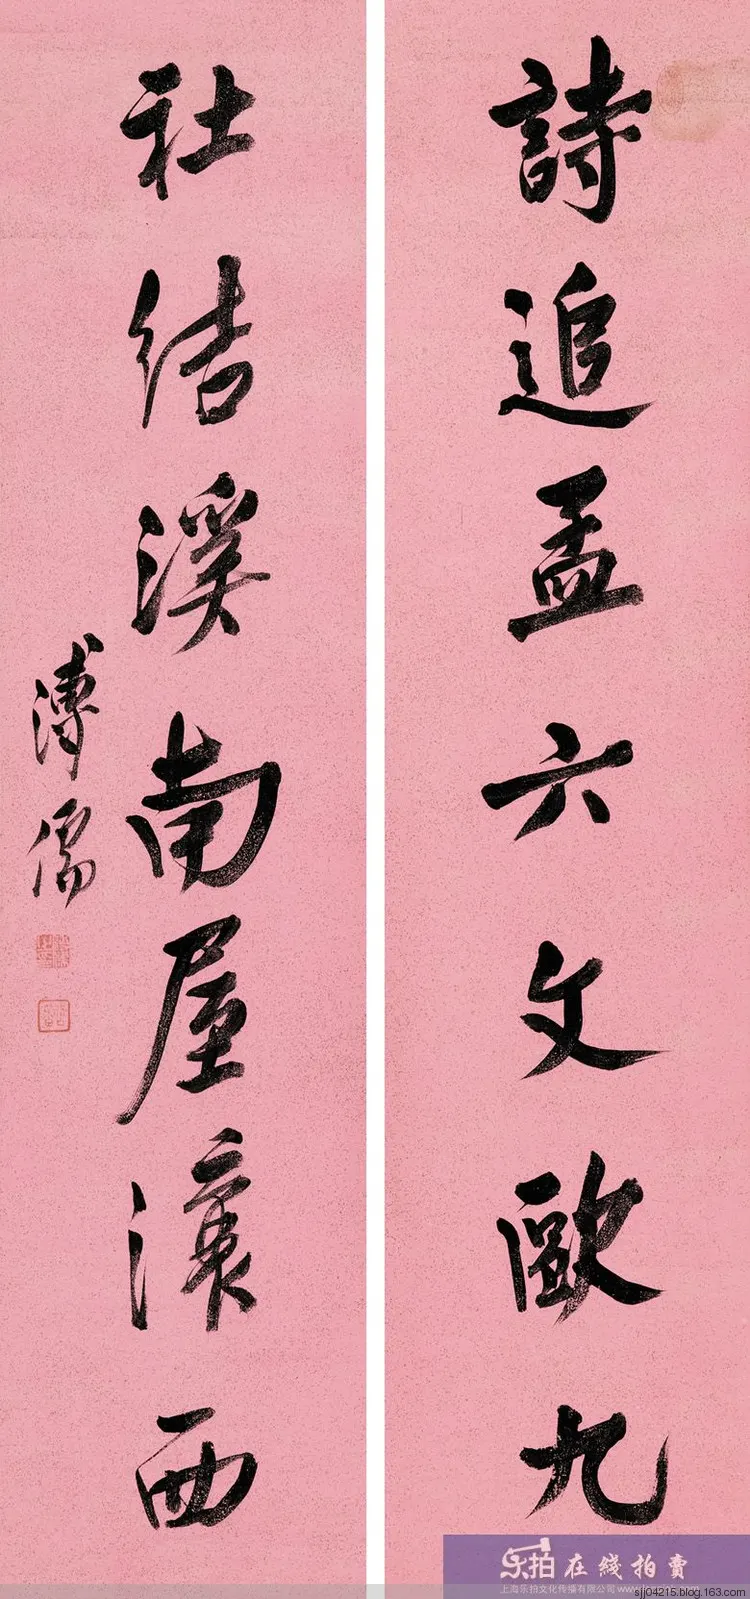 詩追孟六文歐九
社結溪南屋瀼西
溥儒
乐拍在綫拍賣
上海乐拍文化传播有限公司
sjj04215.blog.163.com